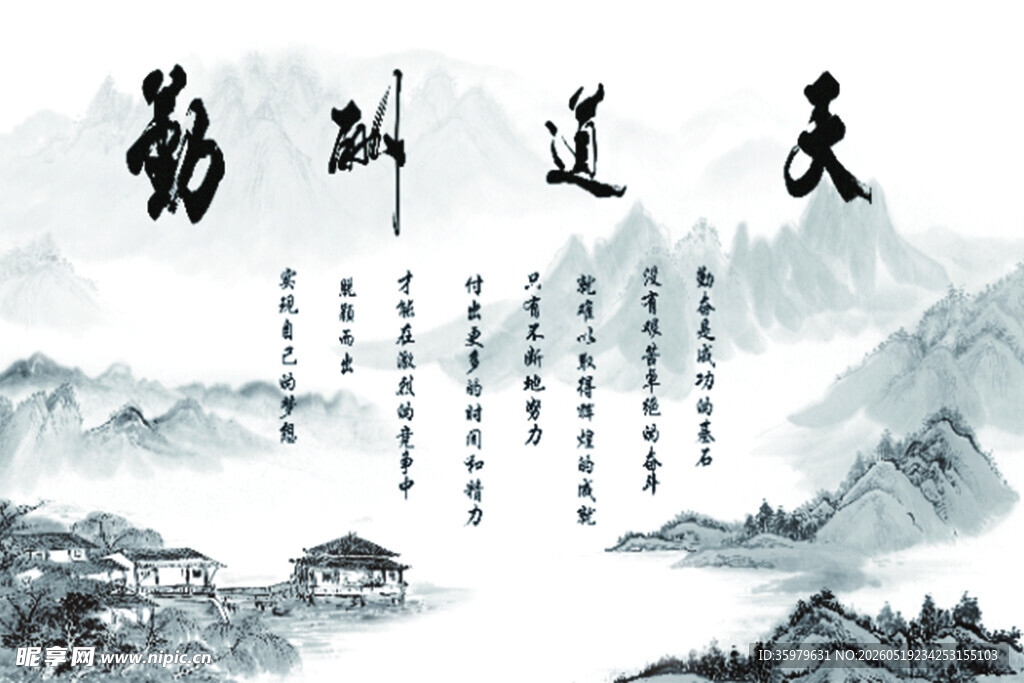 天道酬勤
勤奋是成功的基石
没有艰苦卓绝的奋斗
就难以取得辉煌的成就
只有不断地努力
付出更多的时间和精力
才能在激烈的竞争中
脱颖而出
实现自己的梦想
昵享网 www.nipic.cn
ID:35979631 NO:20260519234253155103